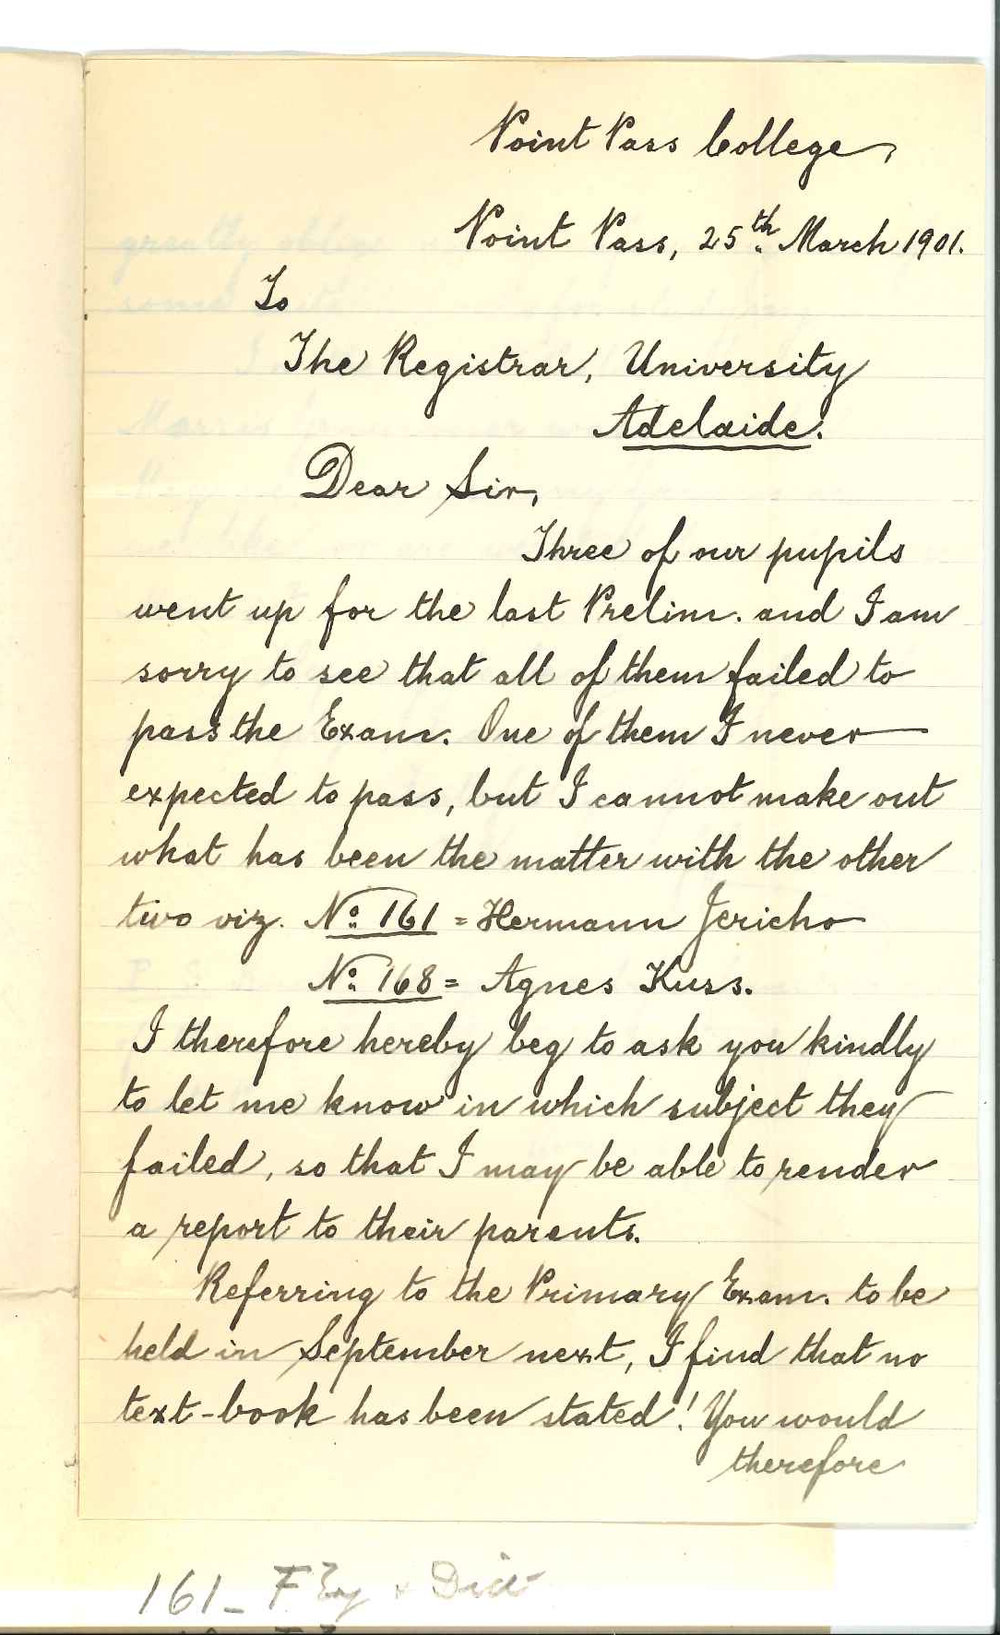 Point Pass College,
Point Pass, 25th. March 1901.
To
The Registrar, University
Adelaide.
Dear Sir,
Three of our pupils
went up for the last Prelim. and I am
sorry to see that all of them failed to
pass the Exam. One of them I never
expected to pass, but I cannot make out
what has been the matter with the other
two viz. No. 161 = Hermann Jericho
No. 168 = Agnes Kuss.
I therefore hereby beg to ask you kindly
to let me know in which subject they
failed, so that I may be able to render
a report to their parents.
Referring to the Primary Exam. to be
held in September next, I find that no
text-book has been stated! You would
therefore
161 - F